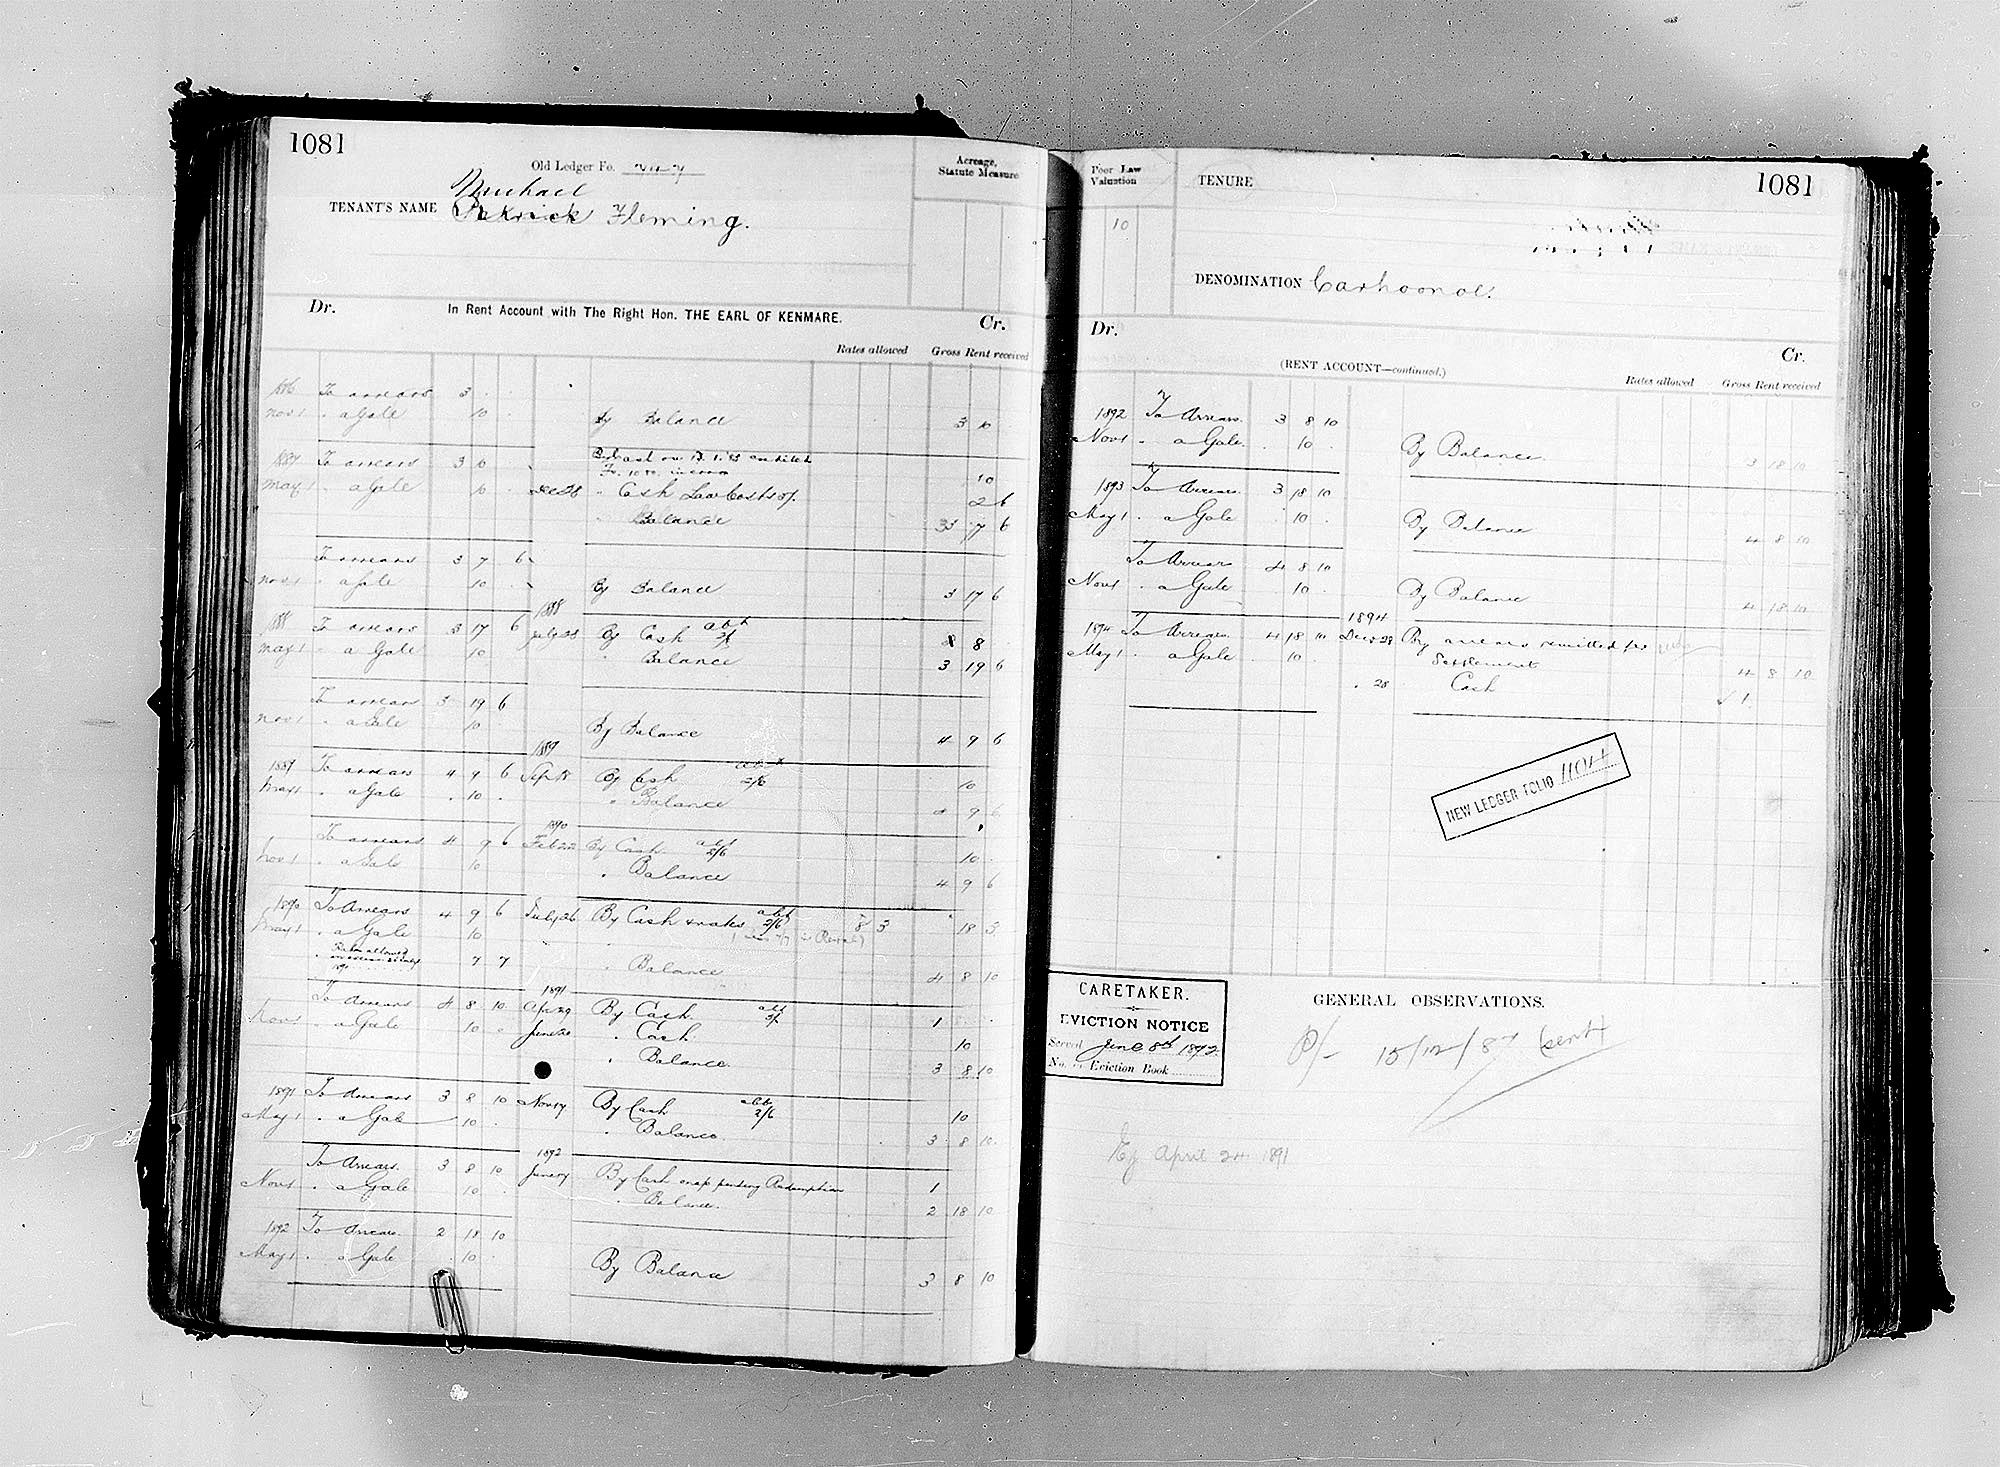 1081
Old Ledger Fo.
Acreage,
Statute Measure
Michael
TENANT'S NAME Patrick Fleming.
Dr. In Rent Account with The Right Hon. THE EARL OF KENMARE. Cr.
Rates allowed Gross Rent received
1886 To arrears 3
Nov 1 " a Gale 10 By Balance 3 10
1887 To arrears 3 10
10
May 1 " a Gale 10 Dec 28 " Cash Law Costs of 2 6
" Balance 3 7 6
To arrears 3 7 6
Nov 1 " a Gale 10 By Balance 3 17 6
1888
1888 To arrears 3 17 6 July 28 By Cash abt 2/ 8
May 1 " a Gale 10 " Balance 3 19 6
To arrears 3 19 6
Nov 1 " a Gale 10 By Balance 4 9 6
1889
1889 To arrears 4 9 6 Sep 18 By Cash abt 2/6 10
May 1 " a Gale 10 " Balance 4 9 6
1890
To arrears 4 9 6 Feb 22 By Cash abt 2/6 10
Nov 1 " a Gale 10 " Balance 4 9 6
1890 To Arrears 4 9 6 July 26 By Cash & rates abt 2/6 8 3 18 3
May 1 " a Gale 10
7 7 " Balance 4 8 10
1891
To Arrears 4 8 10 Apr 29 By Cash abt 1
Nov 1 " a Gale 10 June 20 " Cash 10
" Balance 3 8 10
1891 To Arrears 3 8 10 Nov 17 By Cash abt 2/6 10
May 1 " a Gale 10 " Balance 3 8 10
1892
To Arrears 3 8 10 June 7 By Cash pending Redemption 1
Nov 1 " a Gale 10 " Balance 2 18 10
1892 To Arrears 2 18 10
May 1 " a Gale 10 By Balance 3 8 10
Poor Law
Valuation
TENURE
1081
10
DENOMINATION Carhoonoe.
Dr. Cr.
(RENT ACCOUNT—continued.)
Rates allowed Gross Rent received
1892 To Arrears 3 8 10
Nov 1 " a Gale 10 By Balance 3 18 10
1893 To Arrears 3 18 10
May 1 " a Gale 10 By Balance 4 8 10
To Arrears 4 8 10
Nov 1 " a Gale 10 By Balance 4 18 10
1894
1894 To Arrears 4 18 10 Dec 28 By arrears remitted per
May 1 " a Gale 10 Settlement 4 8 10
" 28 Cash 1
NEW LEDGER FOLIO 1104
CARETAKER.
EVICTION NOTICE
Served June 8th 1892
No. in Eviction Book
GENERAL OBSERVATIONS.
P/- 15/12/87 sent
Ej April 24 1891